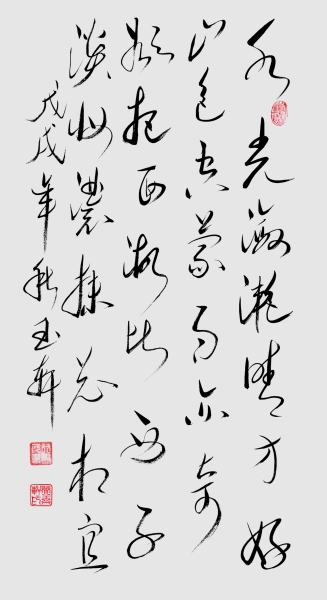 水光潋滟晴方好
山色空蒙雨亦奇
欲把西湖比西子
淡妆浓抹总相宜
戊戌年秋玉轩